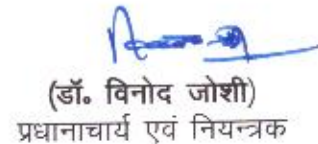 (डॉ॰ विनोद जोशी)
प्रधानाचार्य एवं नियन्त्रक